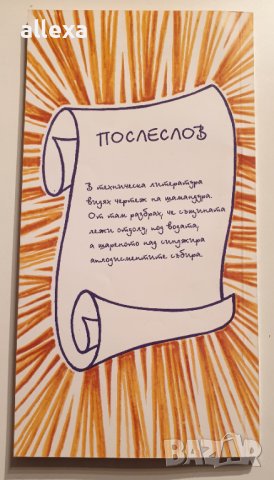 allexa
ПОСЛЕСЛОВ
В техническа литература
видях чертеж на шамандура.
От там разбрах, че същината
лежи отдолу, под водата,
а шареното над синджира
аплодисментите събира.
BAZAR